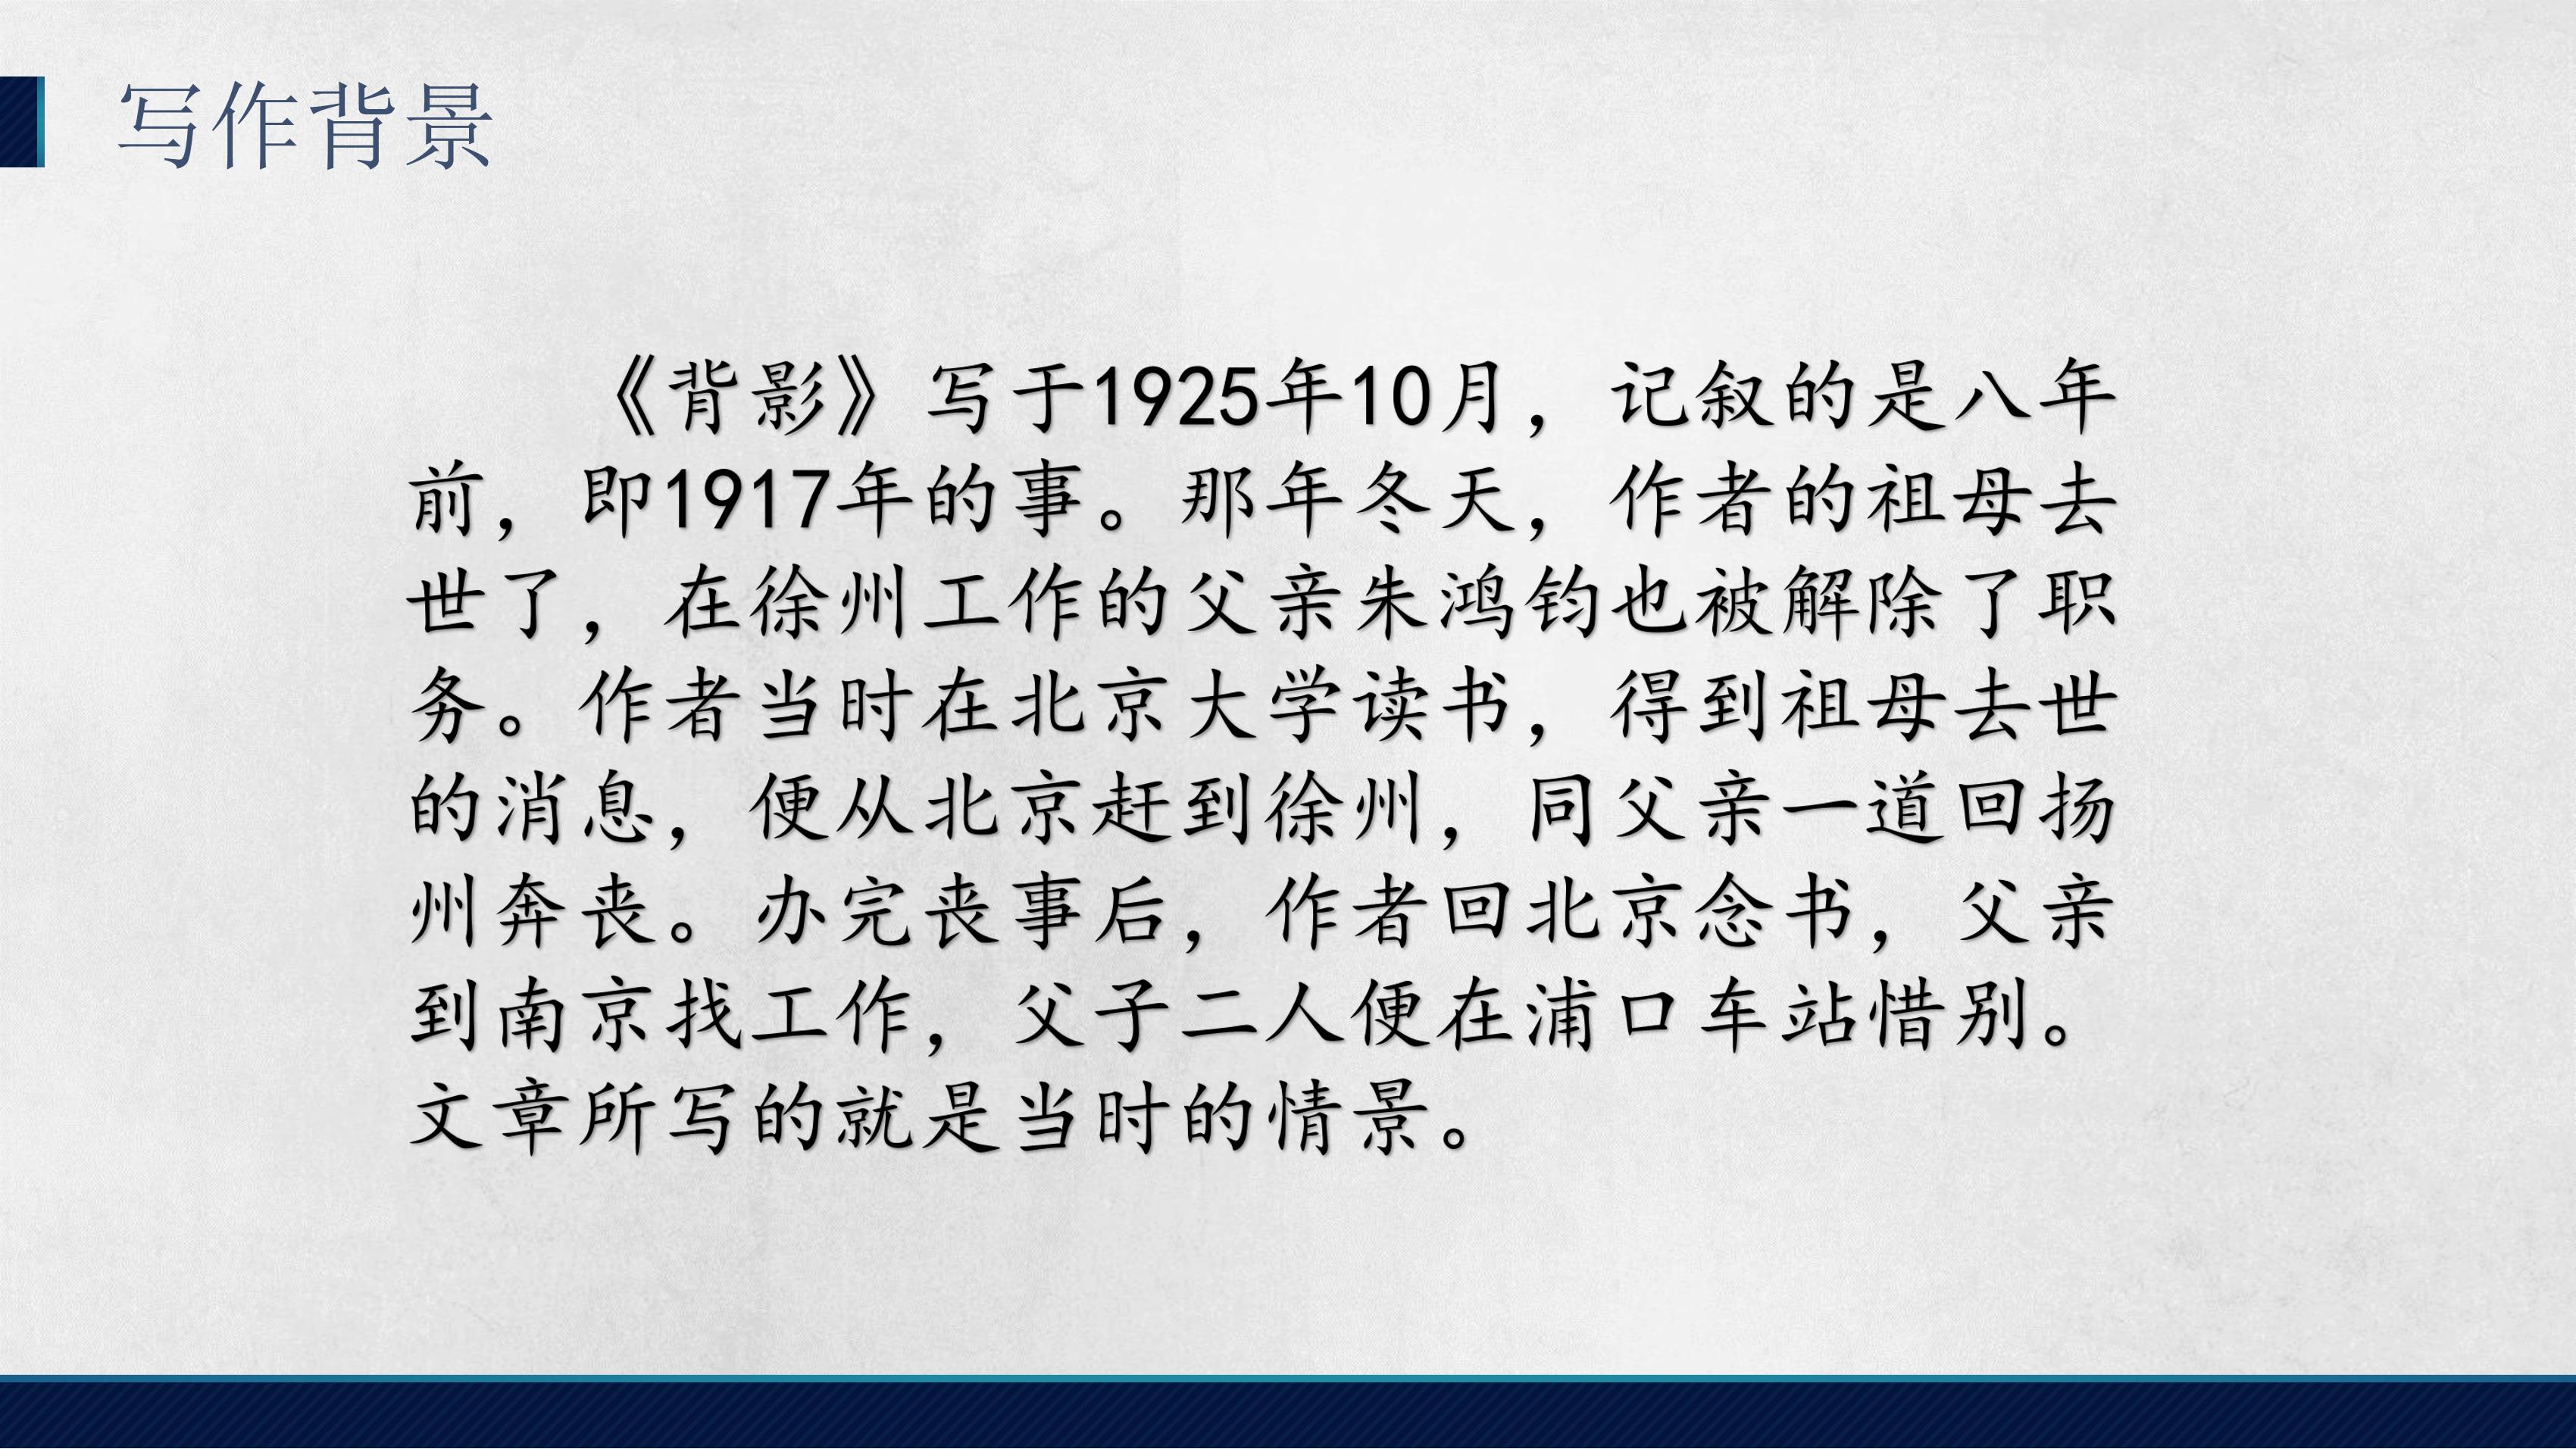 写作背景
《背影》写于1925年10月，记叙的是八年
前，即1917年的事。那年冬天，作者的祖母去
世了，在徐州工作的父亲朱鸿钧也被解除了职
务。作者当时在北京大学读书，得到祖母去世
的消息，便从北京赶到徐州，同父亲一道回扬
州奔丧。办完丧事后，作者回北京念书，父亲
到南京找工作，父子二人便在浦口车站惜别。
文章所写的就是当时的情景。